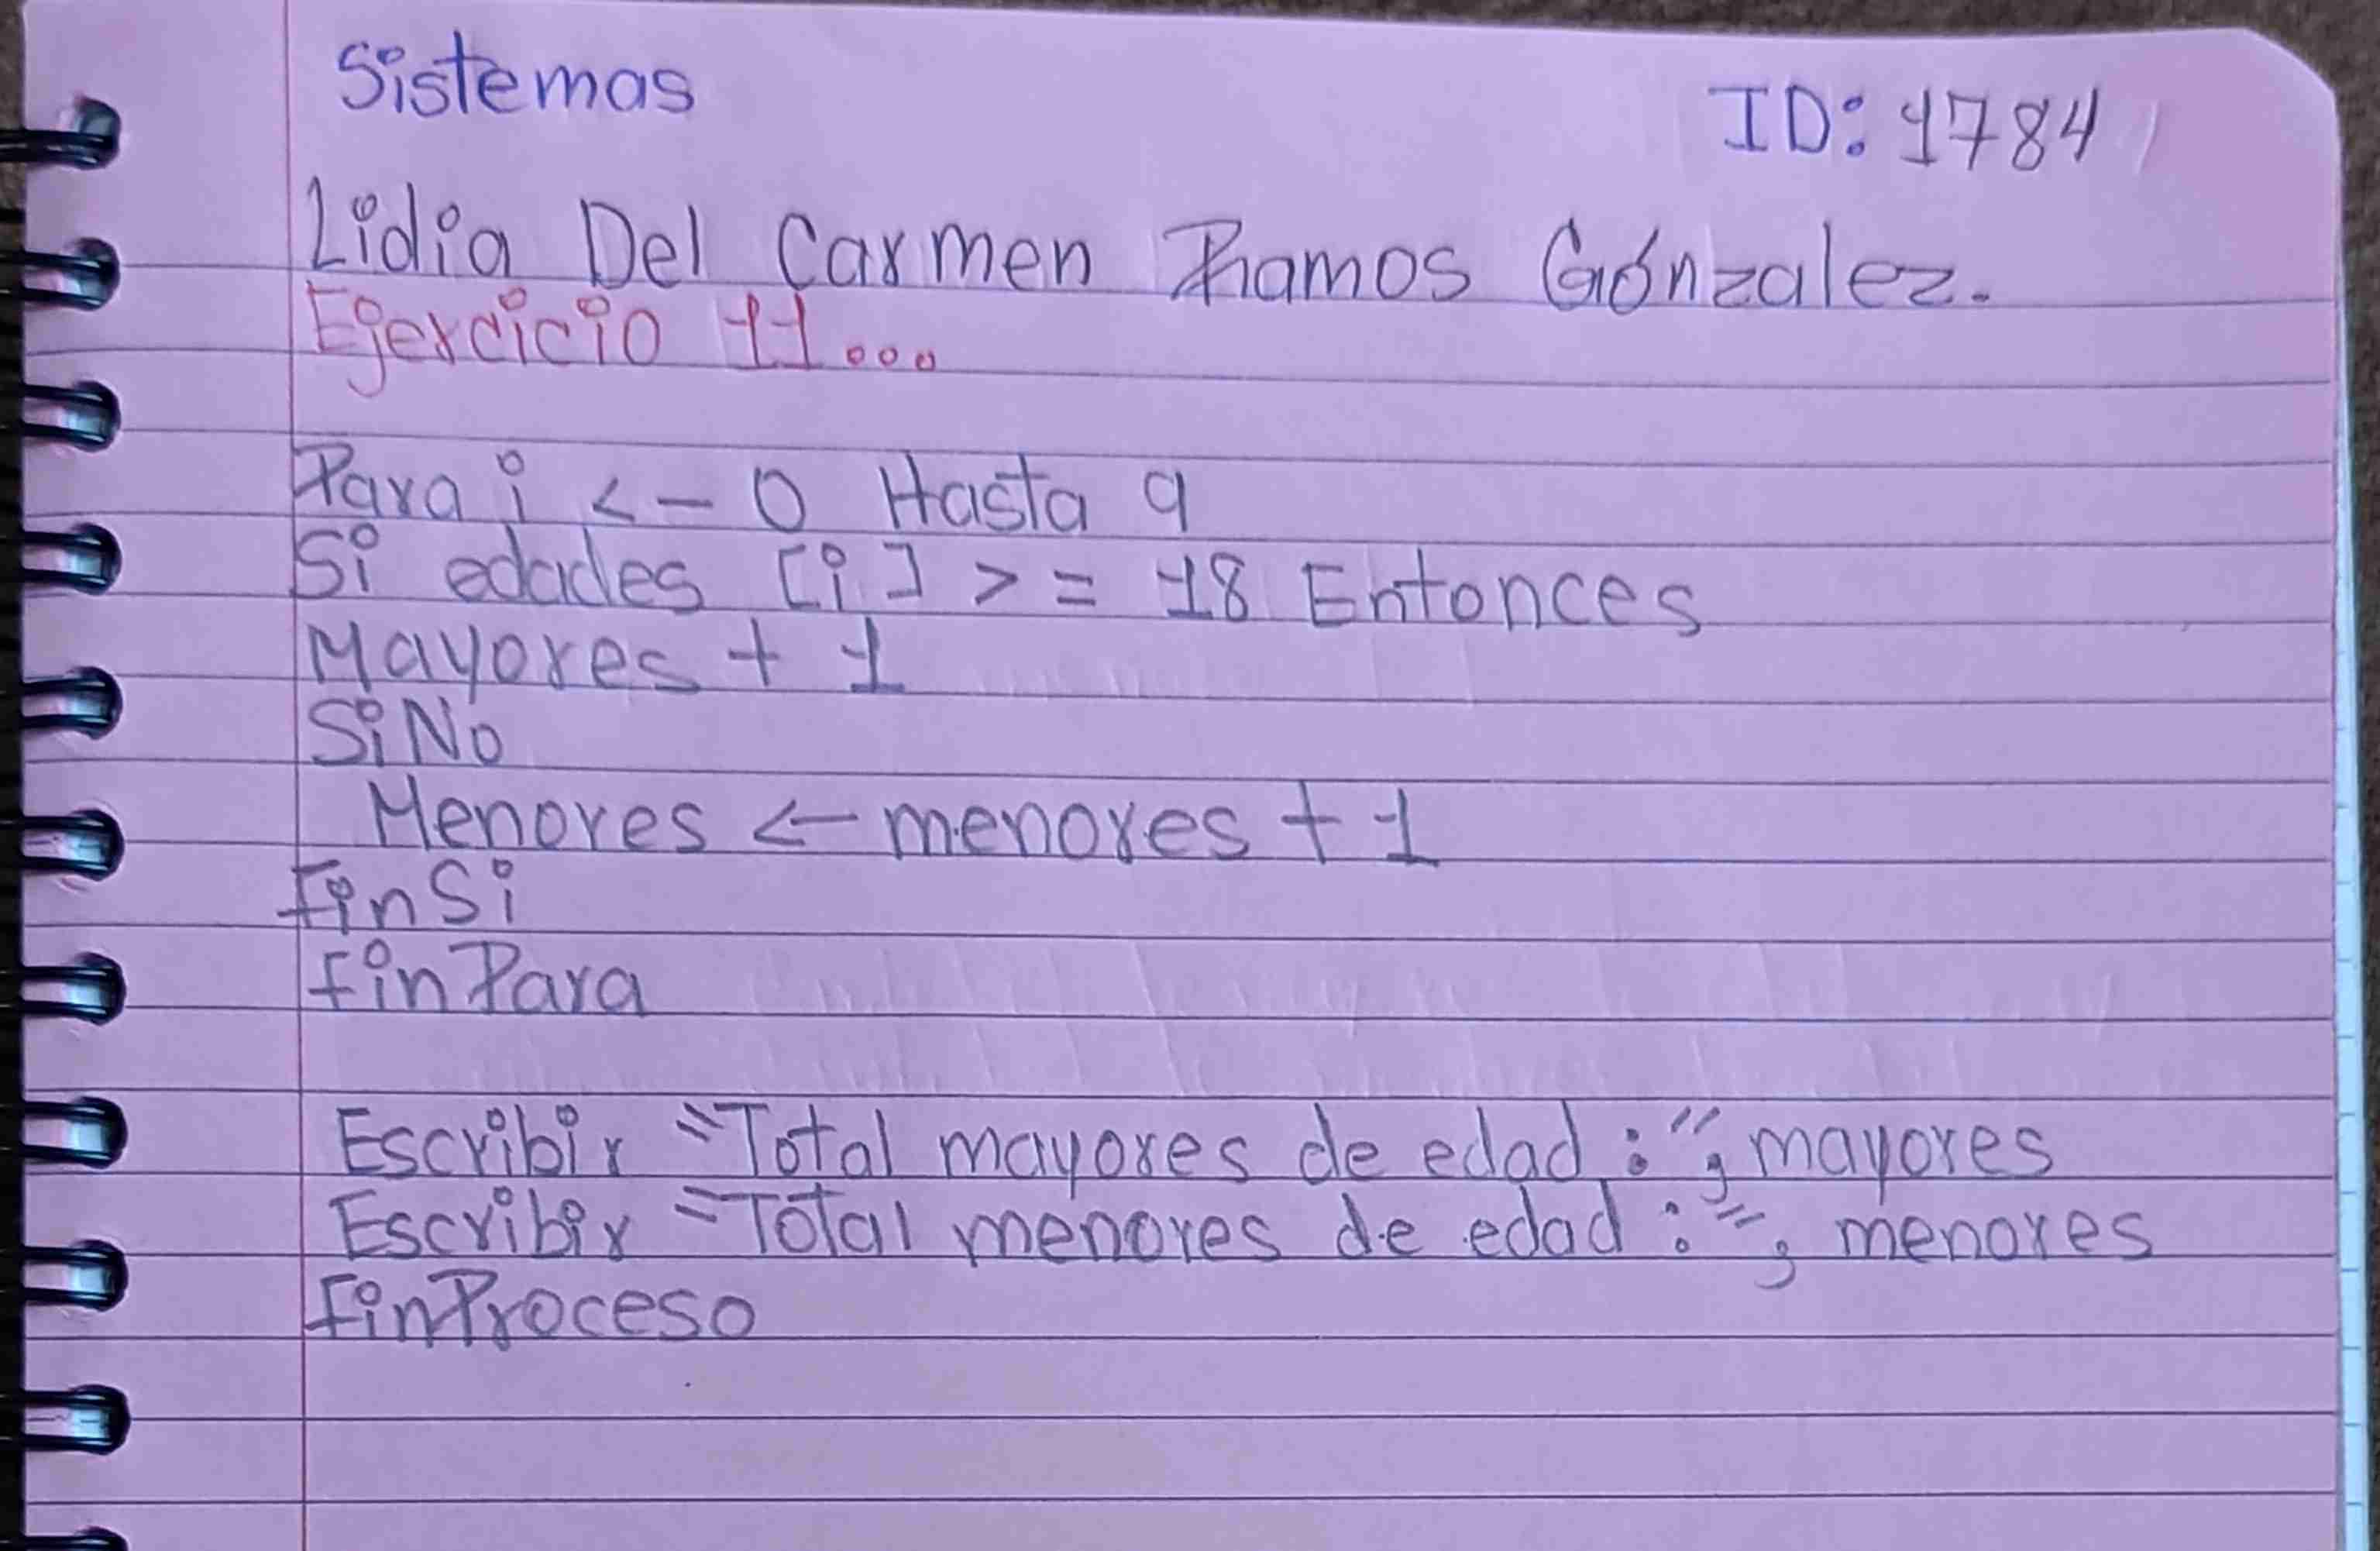 Sistemas
ID: 1784
Lidia Del Carmen Ramos Gónzalez.
Ejercicio 11...
Para i <- 0 Hasta 9
Si edades [i] >= 18 Entonces
Mayores + 1
SiNo
Menores <- menores + 1
FinSi
FinPara
Escribir "Total mayores de edad :", mayores
Escribir "Total menores de edad :", menores
FinProceso